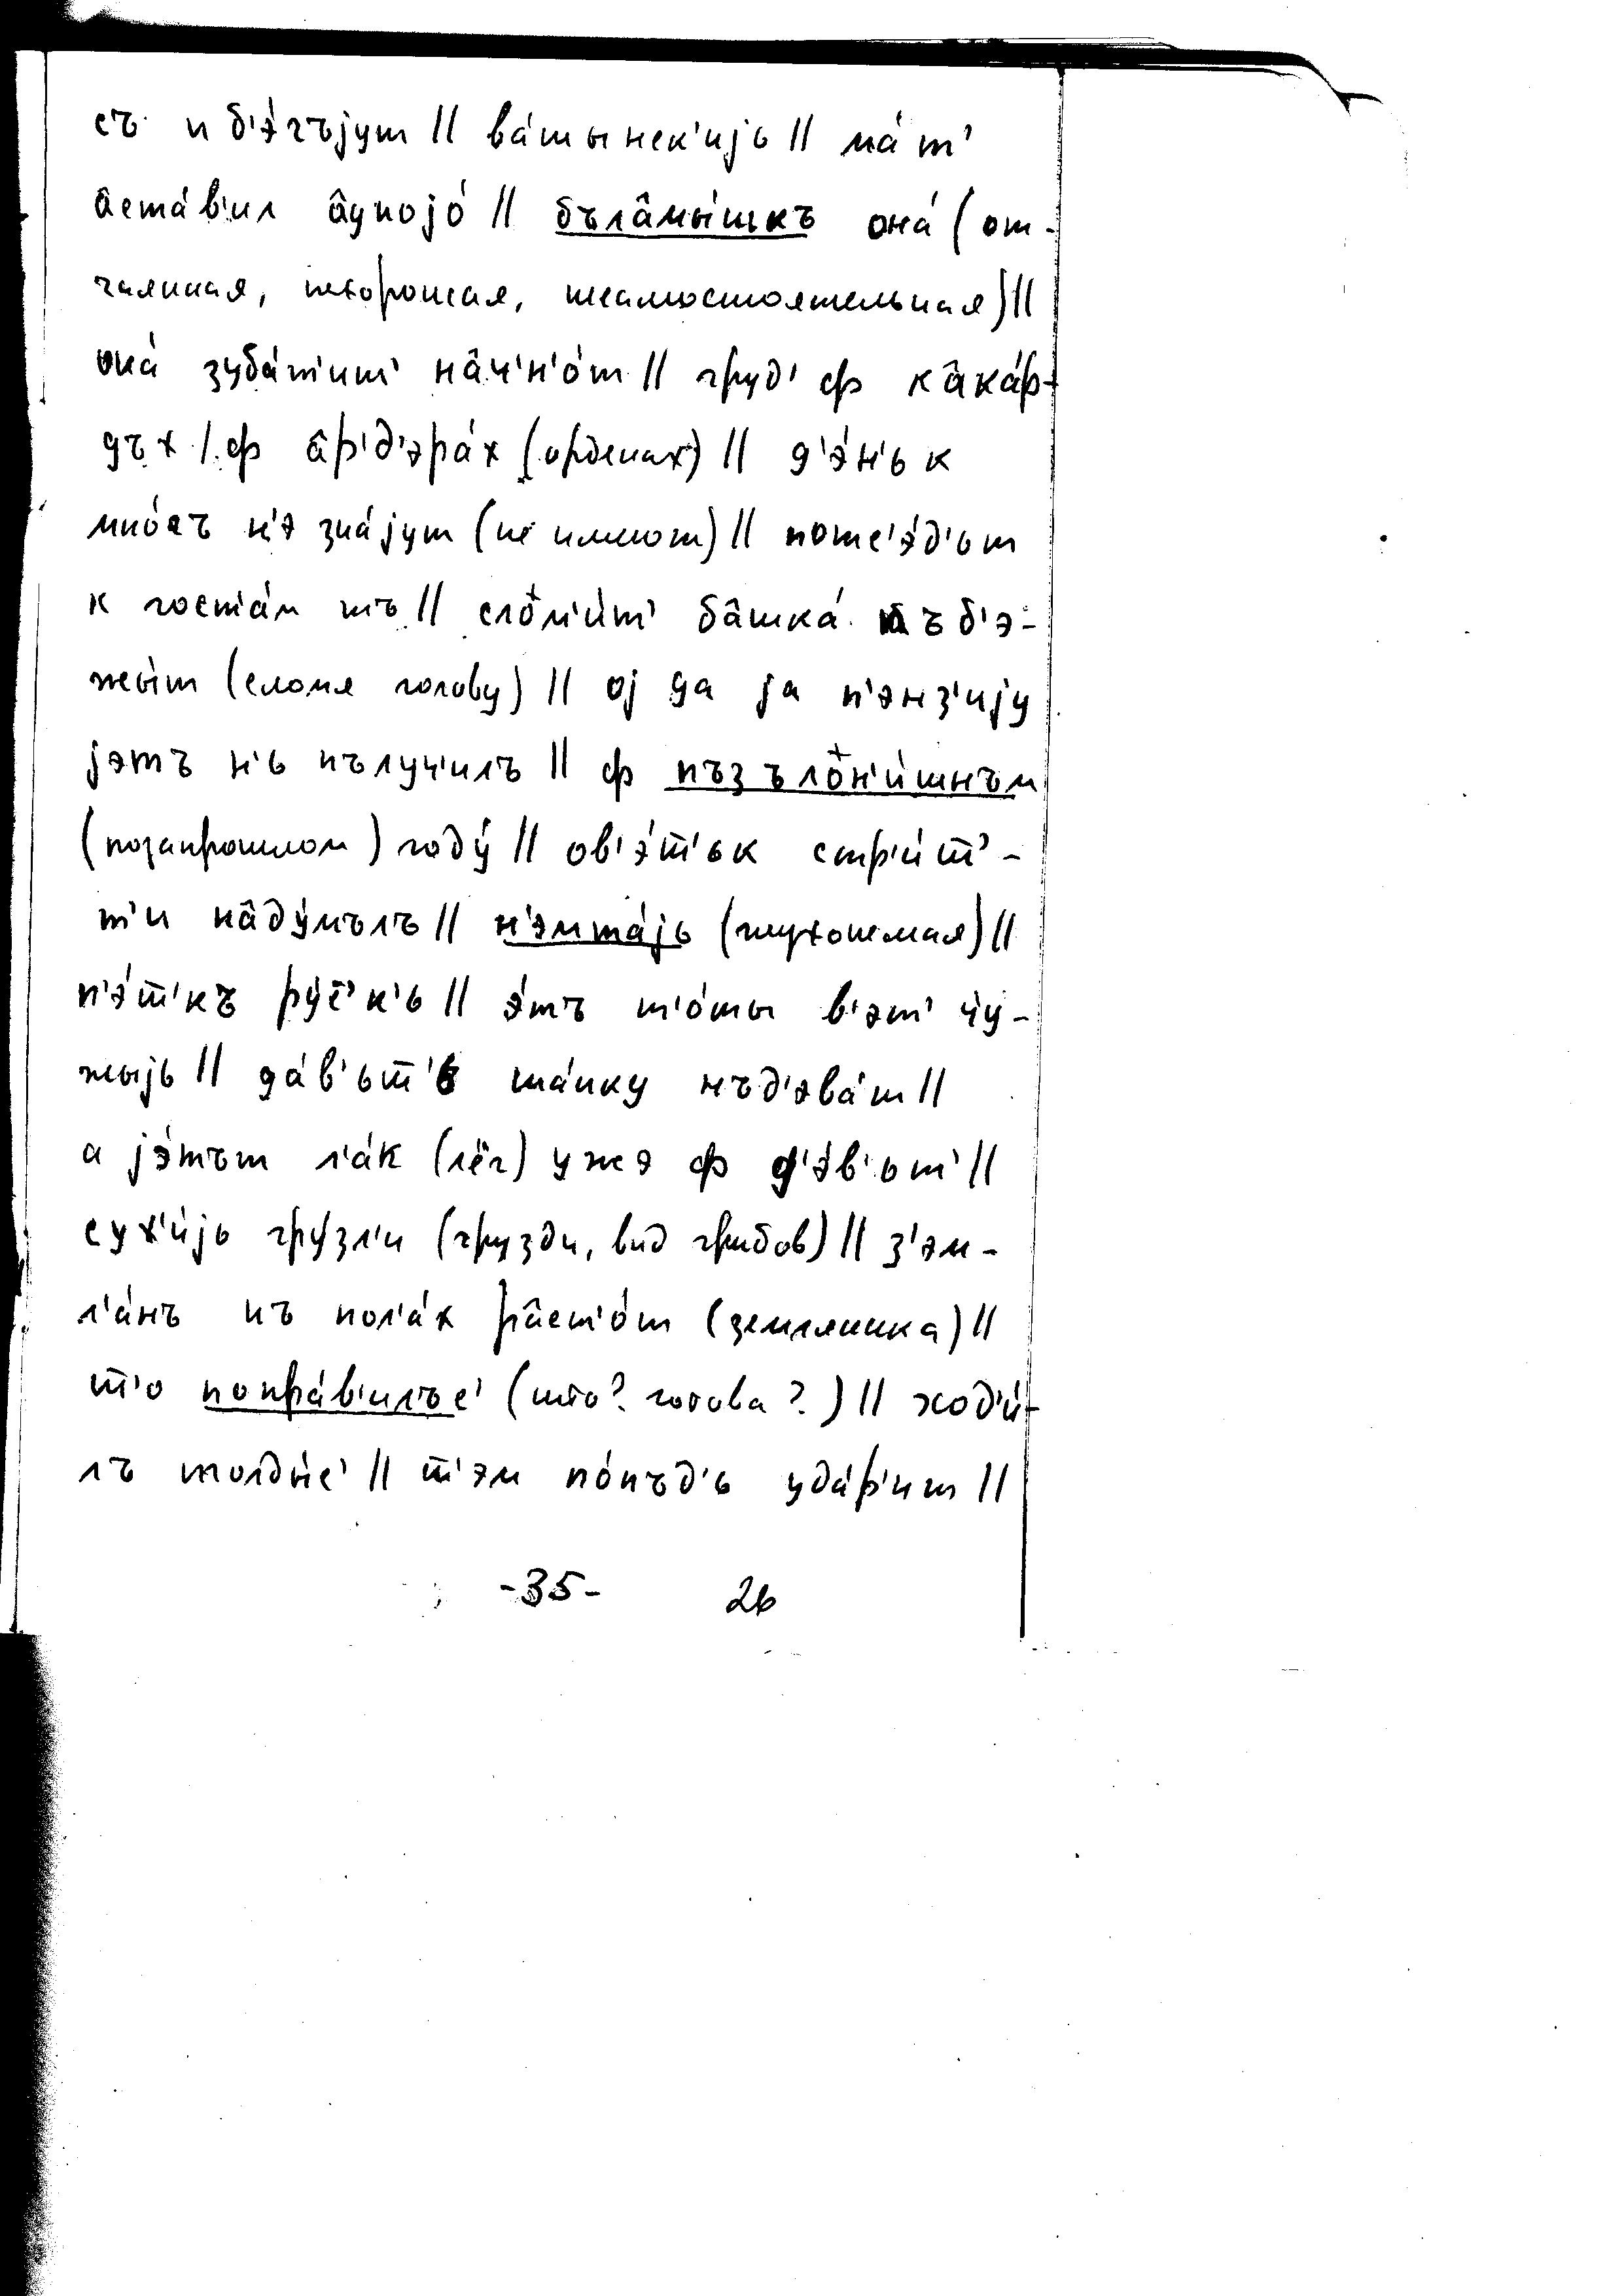 съ и б'э́гъjут || ва́тынск'иjь || ма́т'
а̂ста́в'ил а̂дноjо́ || бъла̂мы́шкъ она́ (от-
чаянная, нехорошая, несамостоятельная) ||
она́ зуба́т'ит' на̂ч'н'о́т || груд' ф ка̂ка́р-
дъх / ф а̂р'д'эра́х (орденах) || д'э́н'ьк
мно́гъ н'э зна́jут (не имеют) || пойе'э́д'ьт
к гост'а́м тъ || сло̂м'и́т' ба̂шка́ къ б'э-
жы́т (сломя голову) || оj да jа п'энз'иjу
jэтъ н'ь пълуч'илъ || ф пъзъло̂н'и́шнъм
(позапрошлом) году́ || ов'э́т̅'ьк стр'и́т̅'-
т'и на̂ду́мълъ || н'эмта́jь (глухонемая) ||
п'э́т̅'къ ру́с̅'к'ь || э́тъ т'о́ты в'эт' чу-
жыjь || да́в'ьт̅'ь ша́пку нъд'эва́т ||
а jэ́тът л'а́к (лёг) уже ф д'э́в'ьт' ||
сух'и́jь гру́зл'и (грузди, вид грибов) || з'эм-
л'а́нъ нъ пол'а́х ра̂ст'о́т (земляника) ||
т̅'о попра́в'илъс' (что? готова?) || ход'и́-
лъ толды́с' || т̅'эм по́пъд'ь уда́р'ит ||
-35- 26